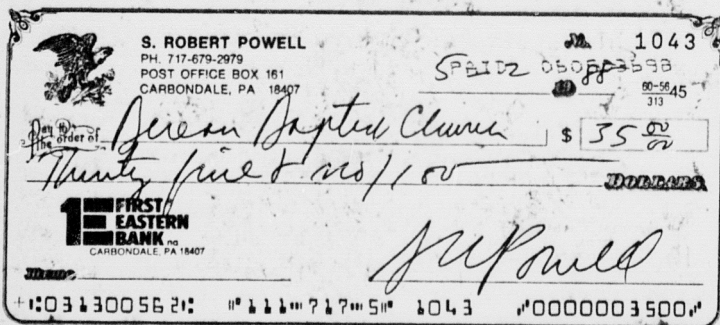 S. ROBERT POWELL
PH. 717-679-2979
POST OFFICE BOX 161
CARBONDALE, PA 18407
No. 1043
60-5645
313
Pay to the order of Berean Baptist Church $ 35 00/00
Thirty five & no/100 DOLLARS
1E FIRST EASTERN BANK na
CARBONDALE, PA 18407
Memo
S R Powell
⑆031300562⑆ ⑈111⑉717⑉5⑈ 1043 ⑈0000003500⑈